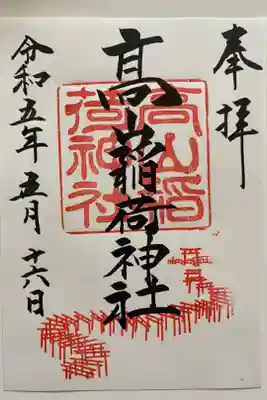 奉拝
高山稲荷神社
高山稲荷神社
令和五年五月十六日